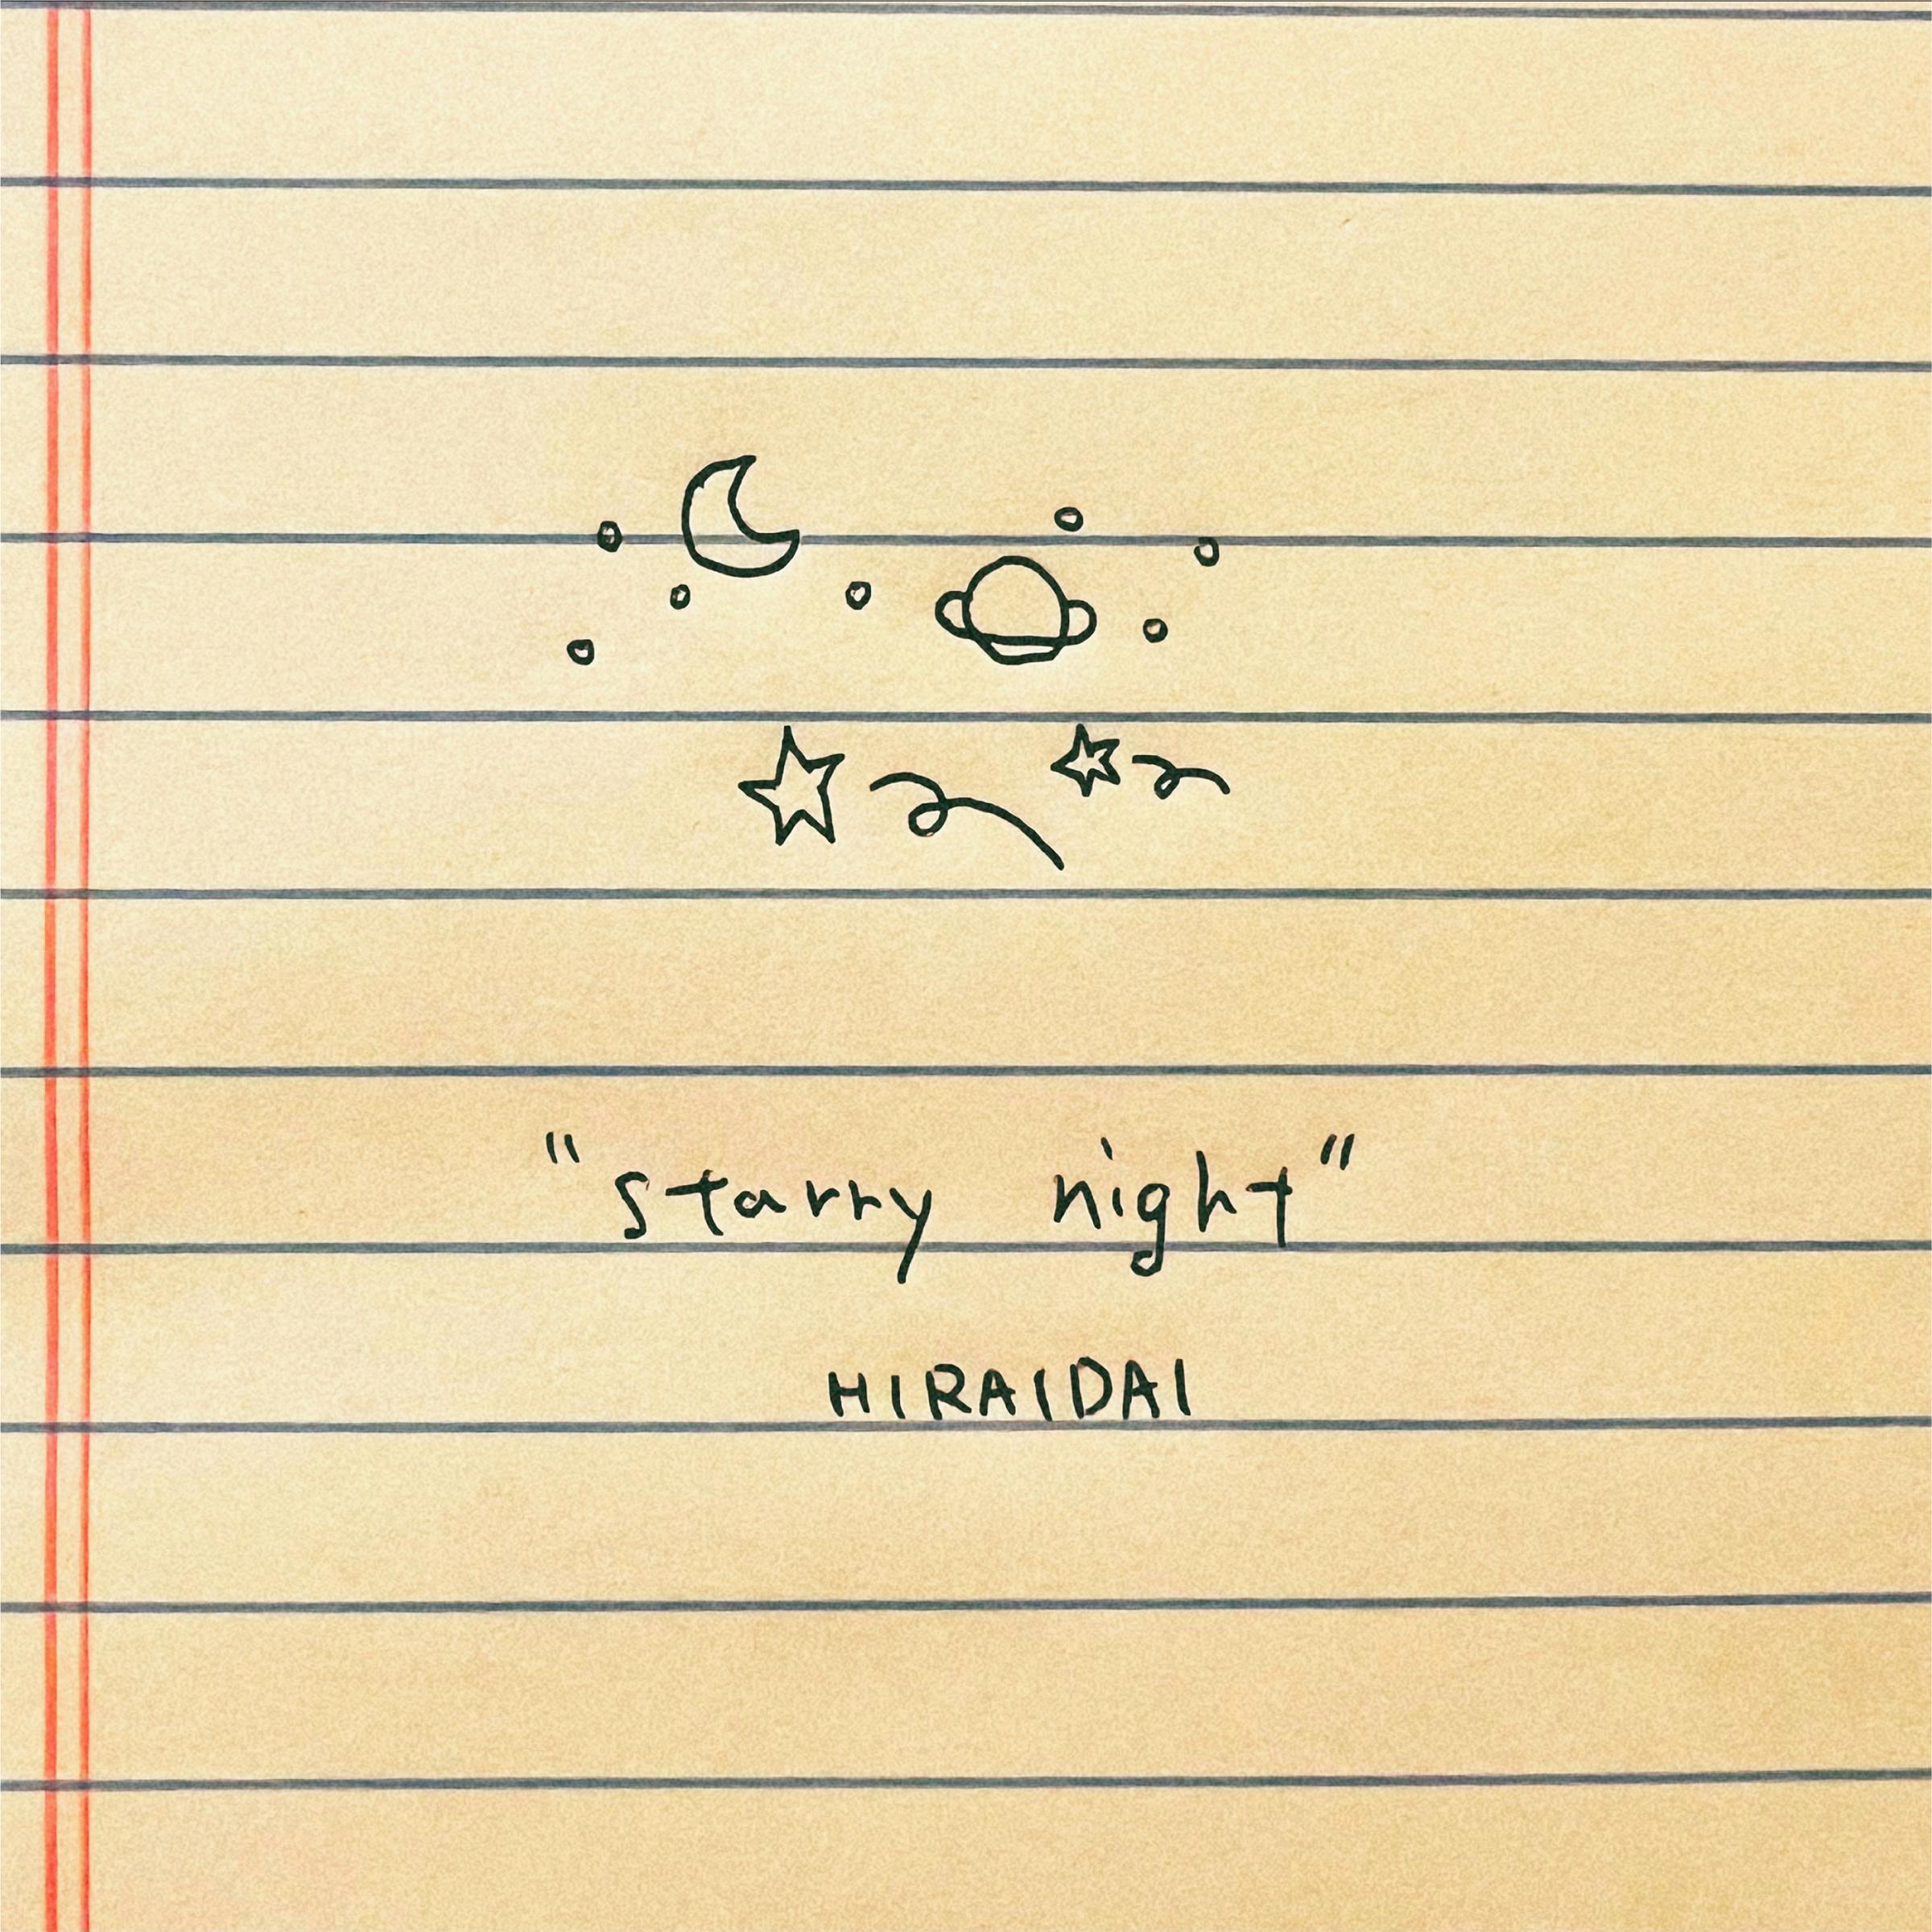 "starry night"
HIRAIDAI